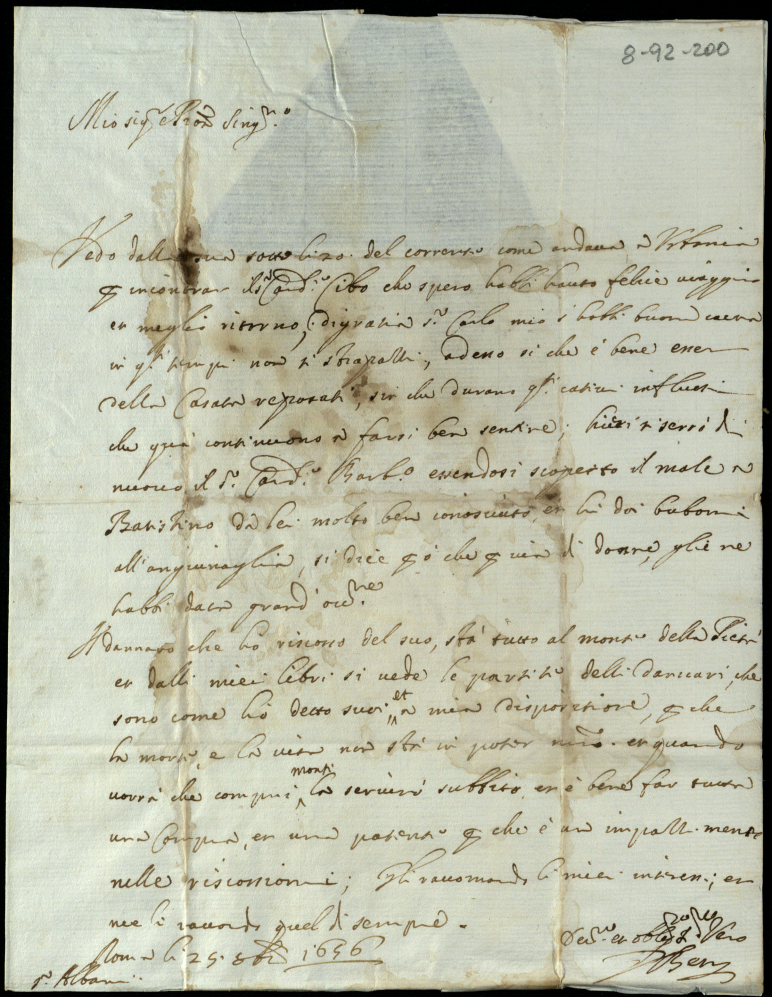 8-92-200
Mio sig.r e Pron Sing.mo
Vedo dalla sua sotto li 20 del corrente come andava a Urbania
incontrar il s.r Card.le Cibo che spero habbi hauto felice viaggio
et meglio ritorno, digratia s.r Carlo mio s'habbi buona cura
in q.ti tempi non si strapalli, adesso si che è bene esser
della Casata reposati, sin che durano q.ti cativi influssi
che quà continuono a farsi ben sentire; hieri si serrò di
nuovo il s.r Card.le Barb.o essendosi scoperto il male a
Batistino da lei molto ben conosciuto, et hà doi buboni
all'anguinaglia, si dice che via di donne, gliene
habbi data grand' occ.ne
Il dannaro che hò riscosso del suo, stà tutto al monte della Pietà
et dalli miei libri si vede le partite delli dannari, che
sono come hò detto suoi et a mia dispositione, che
la morte, e la vita non stà in poter nro. et quando
vorrà che compri monti la servirò subbito, et è bene far tutta
una Compra, et una patente che è un impalli mento
nelle riscossioni; gli racomando li miei interessi; et
me li racordo quel di sempre.
Roma li 25 1656
s.r Albani
Vero